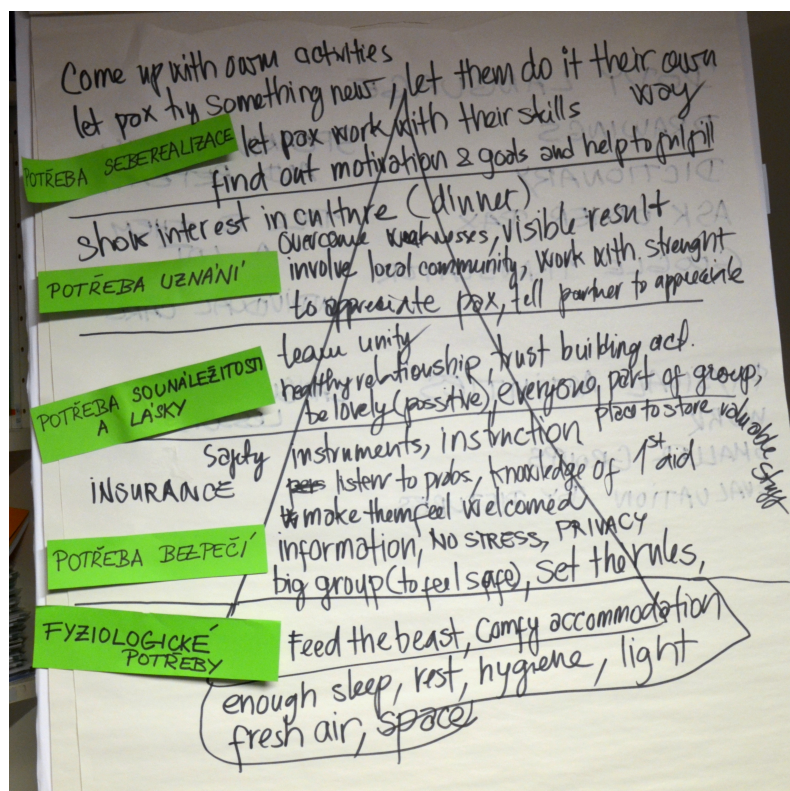 Come up with own activities
let pax try something new, let them do it their own way
POTŘEBA SEBEREALIZACE
let pax work with their skills
find out motivation & goals and help to fulfill
show interest in culture (dinner)
overcome weaknesses, visible result
POTŘEBA UZNÁNÍ
involve local community, work with strenght
to appreciate pax, tell partner to appreciate
team unity
healthy relationship, trust building act.
POTŘEBA SOUNÁLEŽITOSTI
A LÁSKY
be lovely (possitive), everyone, part of group,
place to store valuable stuff
Safety instruments, instruction
INSURANCE
listen to probs, knowledge of 1st aid
make them feel welcomed
POTŘEBA BEZPEČÍ
information, NO STRESS, PRIVACY
big group (to feel safe), set the rules,
FYZIOLOGICKÉ
POTŘEBY
Feed the beast, Comfy accommodation
enough sleep, rest, hygiene, light
fresh air, space